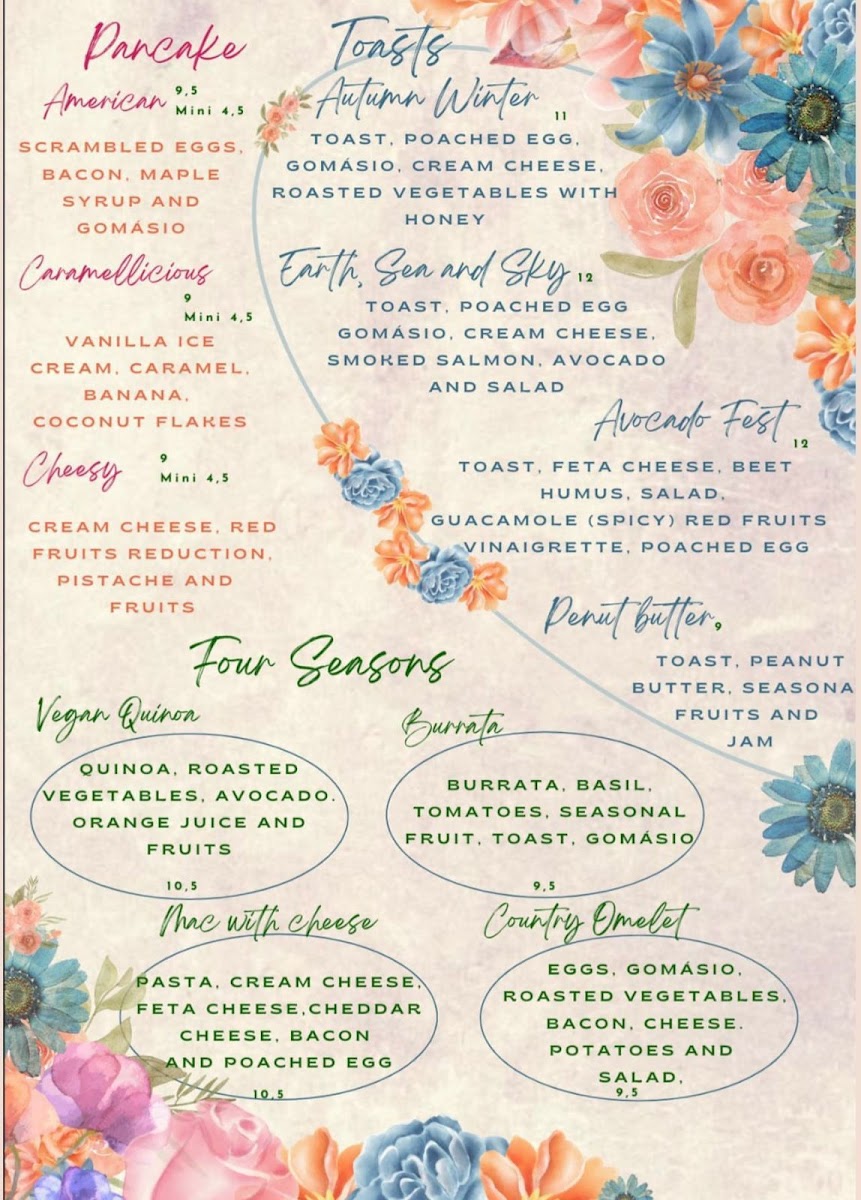 Pancake
American 9,5
Mini 4,5
SCRAMBLED EGGS,
BACON, MAPLE
SYRUP AND
GOMÁSIO
Caramellicious
9
Mini 4,5
VANILLA ICE
CREAM, CARAMEL,
BANANA,
COCONUT FLAKES
Cheesy 9
Mini 4,5
CREAM CHEESE, RED
FRUITS REDUCTION,
PISTACHE AND
FRUITS
Toasts
Autumn Winter 11
TOAST, POACHED EGG,
GOMÁSIO, CREAM CHEESE,
ROASTED VEGETABLES WITH
HONEY
Earth, Sea and Sky 12
TOAST, POACHED EGG
GOMÁSIO, CREAM CHEESE,
SMOKED SALMON, AVOCADO
AND SALAD
Avocado Fest 12
TOAST, FETA CHEESE, BEET
HUMUS, SALAD,
GUACAMOLE (SPICY) RED FRUITS
VINAIGRETTE, POACHED EGG
Penut butter, 9
TOAST, PEANUT
BUTTER, SEASONA
FRUITS AND
JAM
Four Seasons
Vegan Quinoa
QUINOA, ROASTED
VEGETABLES, AVOCADO.
ORANGE JUICE AND
FRUITS
10,5
Burrata
BURRATA, BASIL,
TOMATOES, SEASONAL
FRUIT, TOAST, GOMÁSIO
9,5
Mac with cheese
PASTA, CREAM CHEESE,
FETA CHEESE,CHEDDAR
CHEESE, BACON
AND POACHED EGG
10,5
Country Omelet
EGGS, GOMÁSIO,
ROASTED VEGETABLES,
BACON, CHEESE.
POTATOES AND
SALAD,
9,5